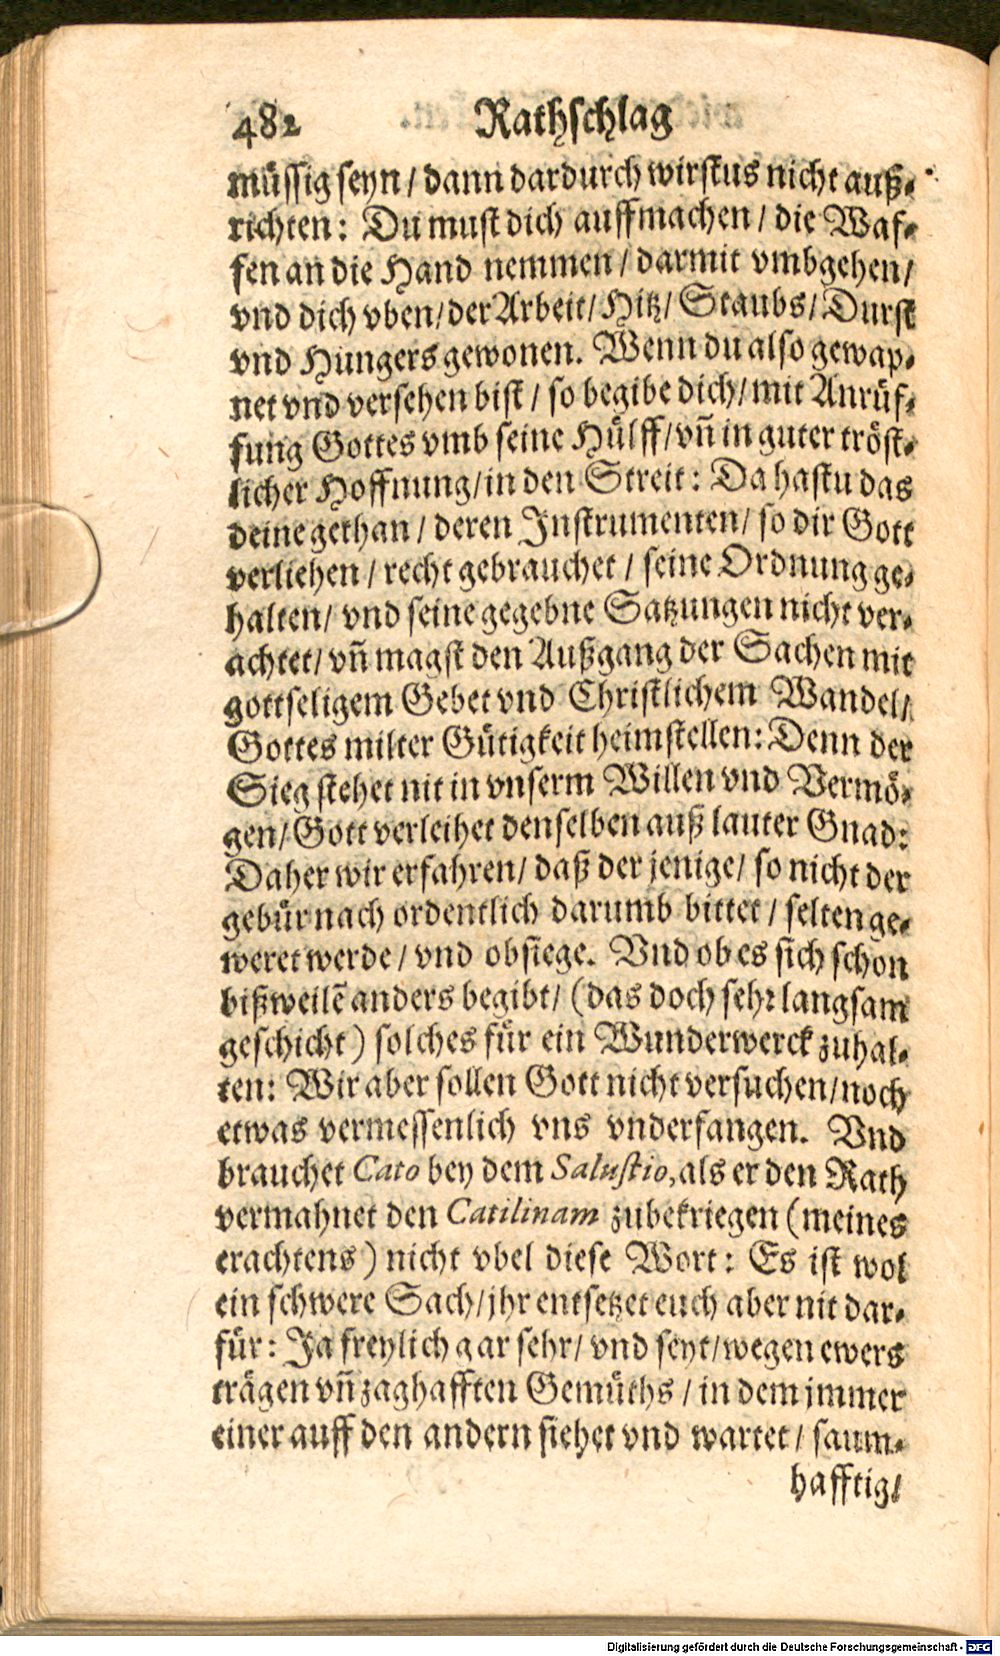 482 Rathschlag
müssig seyn / dann dardurch wirstus nicht auß-
richten: Du must dich auffmachen / die Waf-
fen an die Hand nemmen / darmit vmbgehen /
vnd dich vben / der Arbeit / Hitz / Staubs / Durst
vnd Hungers gewonen. Wenn du also gewap-
net vnd versehen bist / so begibe dich / mit Anrüf-
fung Gottes vmb seine Hülff / vñ in guter tröst-
licher Hoffnung / in den Streit: Da hastu das
deine gethan / deren Instrumenten / so dir Gott
verliehen / recht gebrauchet / seine Ordnung ge-
halten / vnd seine gegebne Satzungen nicht ver-
achtet / vñ magst den Außgang der Sachen mit
gottseligem Gebet vnd Christlichem Wandel /
Gottes milter Gütigkeit heimstellen: Denn der
Sieg stehet nit in vnserm Willen vnd Vermö-
gen / Gott verleihet denselben auß lauter Gnad:
Daher wir erfahren / daß der jenige / so nicht der
gebür nach ordentlich darumb bittet / selten ge-
weret werde / vnd obsiege. Vnd ob es sich schon
bißweilẽ anders begibt / (das doch sehr langsam
geschicht) solches für ein Wunderwerck zuhal-
ten: Wir aber sollen Gott nicht versuchen / noch
etwas vermessenlich vns vnderfangen. Vnd
brauchet Cato bey dem Salustio, als er den Rath
vermahnet den Catilinam zubekriegen (meines
erachtens) nicht vbel diese Wort: Es ist wol
ein schwere Sach / jhr entsetzet euch aber nit dar-
für: Ja freylich gar sehr / vnd seyt / wegen ewers
trägen vñ zaghafften Gemüths / in dem jmmer
einer auff den andern siehet vnd wartet / saum-
hafftig /
Digitalisierung gefördert durch die Deutsche Forschungsgemeinschaft - DFG